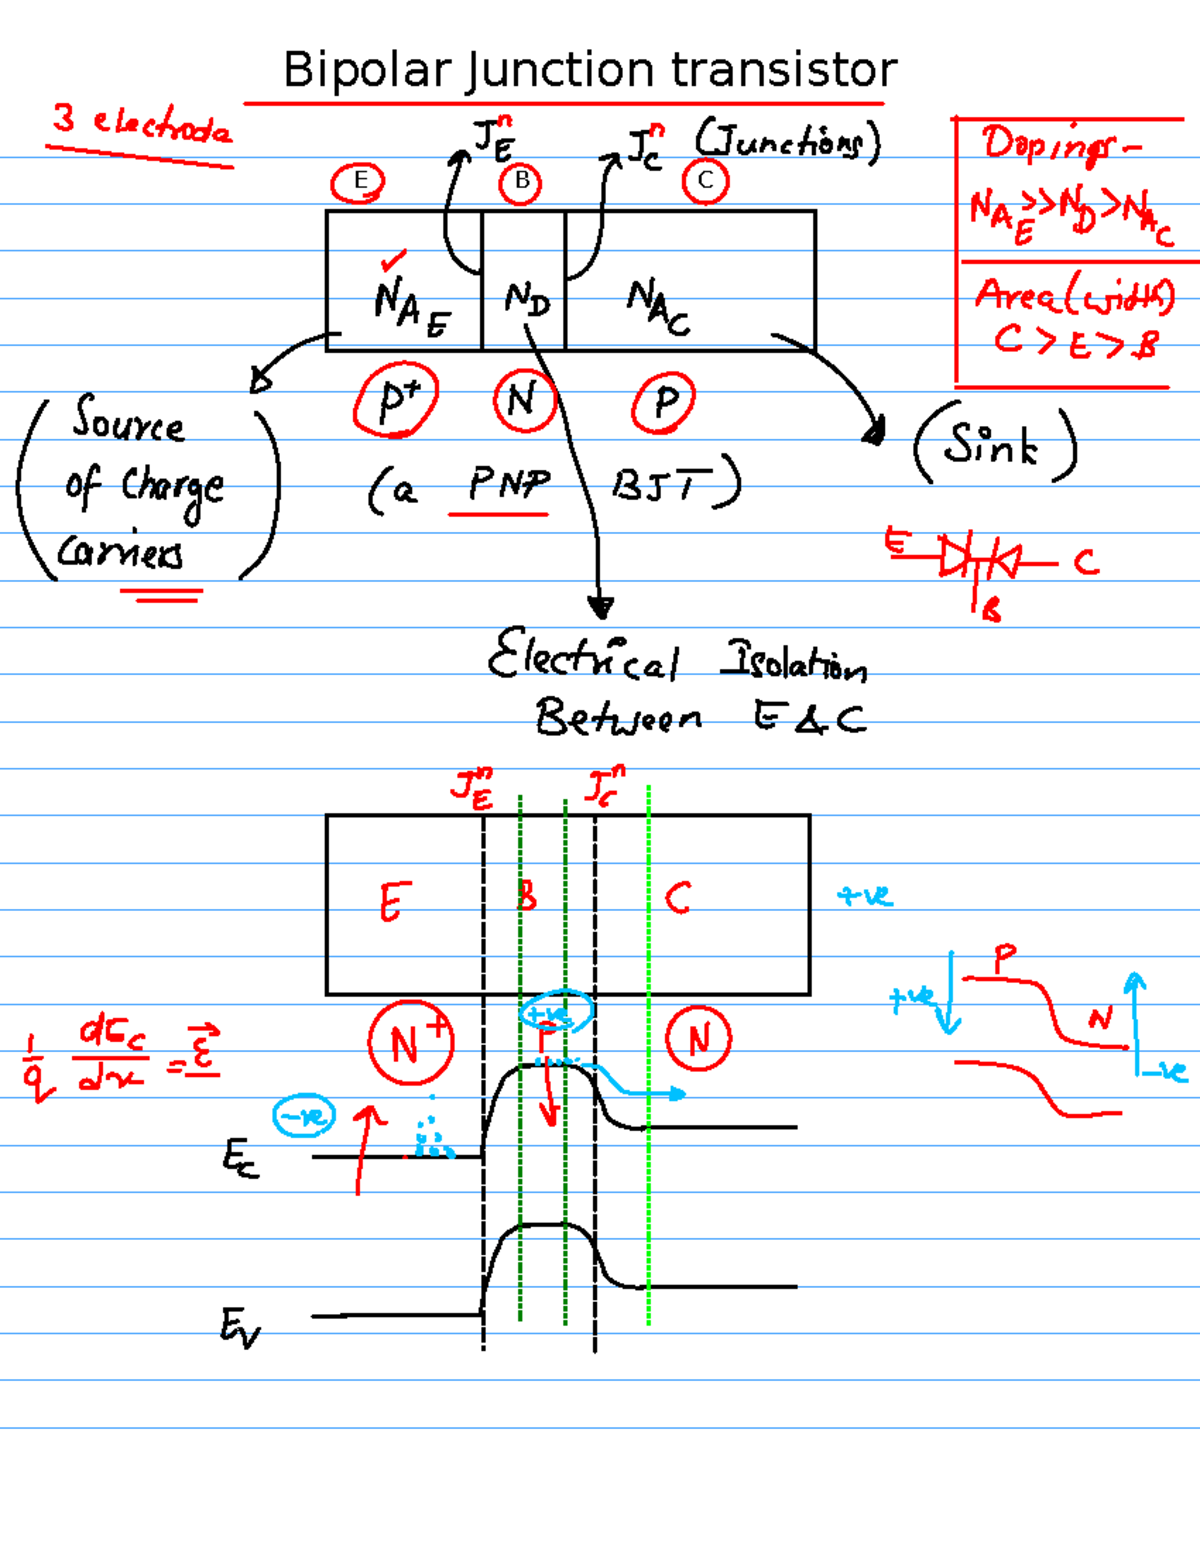 Bipolar Junction transistor
3 electrode
J_E^n J_C^n (Junctions)
E B C
Dopings-
N_{A_E} >> N_D > N_{A_C}
Area (width)
C > E > B
N_{A_E} N_D N_{A_C}
P+ N P
(Source
of Charge
Carriers)
(a PNP BJT)
(Sink)
E C
B
Electrical Isolation
Between E & C
J_E^n J_C^n
E B C +ve
N+ +ve P N
1/q dE_C/dx = ε
-ve
E_C
E_V
P
+ve
N
-ve